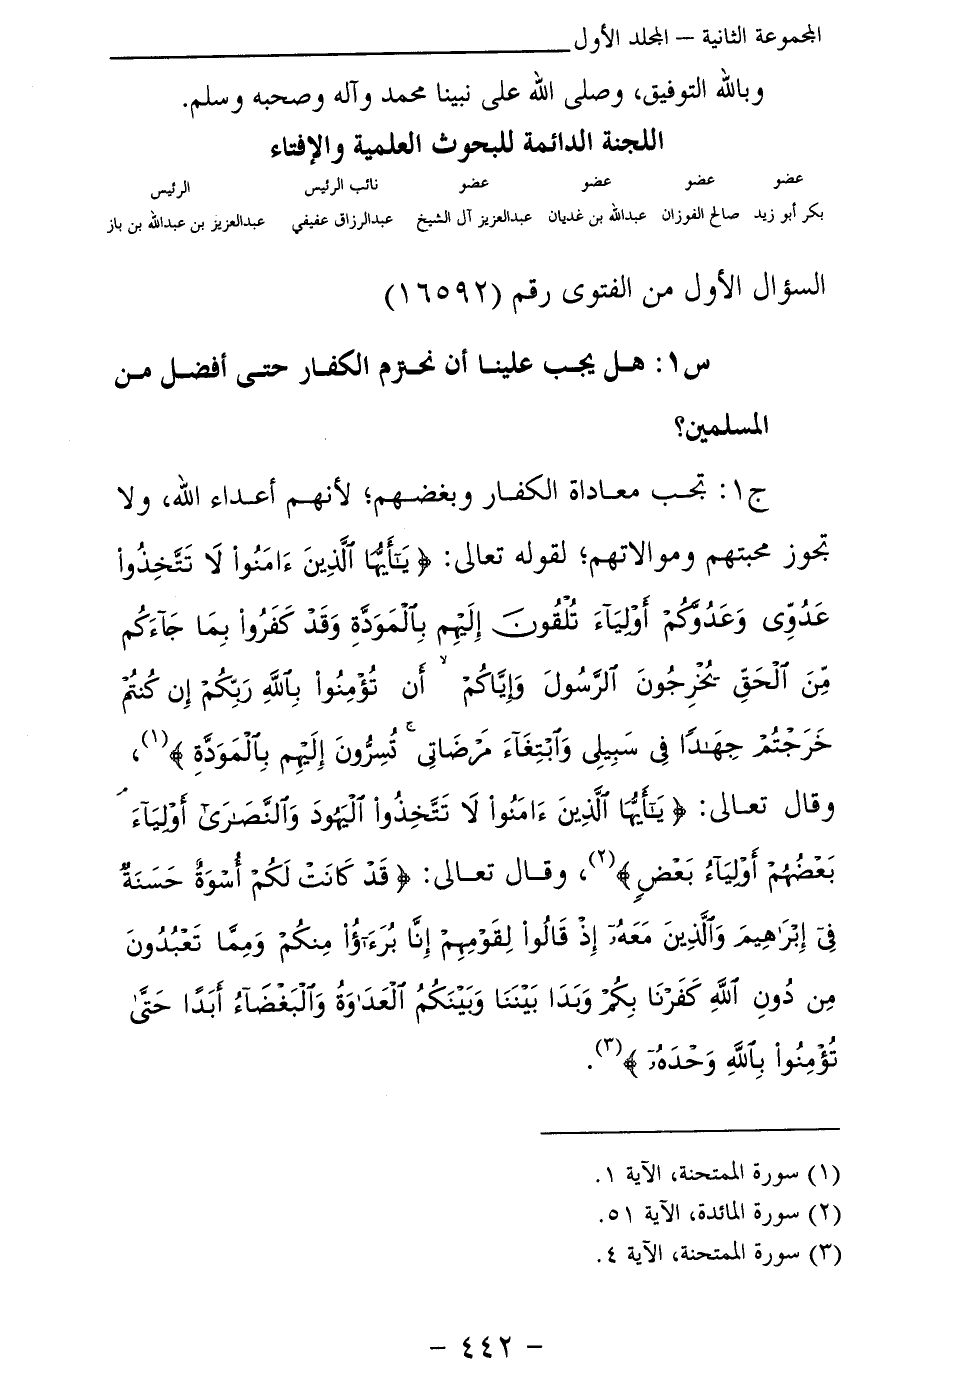 المجموعة الثانية – المجلد الأول
وبالله التوفيق، وصلى الله على نبينا محمد وآله وصحبه وسلم.
اللجنة الدائمة للبحوث العلمية والإفتاء
عضو عضو عضو عضو نائب الرئيس الرئيس
بكر أبو زيد صالح الفوزان عبدالله بن غديان عبدالعزيز آل الشيخ عبدالرزاق عفيفي عبدالعزيز بن عبدالله بن باز
السؤال الأول من الفتوى رقم (١٦٥٩٢)
س١: هل يجب علينا أن نحترم الكفار حتى أفضل من
المسلمين؟
ج١: تجب معاداة الكفار وبغضهم؛ لأنهم أعداء الله، ولا
تجوز محبتهم وموالاتهم؛ لقوله تعالى: ﴿ يَٰٓأَيُّهَا ٱلَّذِينَ ءَامَنُوا۟ لَا تَتَّخِذُوا۟
عَدُوِّى وَعَدُوَّكُمْ أَوْلِيَآءَ تُلْقُونَ إِلَيْهِم بِٱلْمَوَدَّةِ وَقَدْ كَفَرُوا۟ بِمَا جَآءَكُم
مِّنَ ٱلْحَقِّ يُخْرِجُونَ ٱلرَّسُولَ وَإِيَّاكُمْ ۙ أَن تُؤْمِنُوا۟ بِٱللَّهِ رَبِّكُمْ إِن كُنتُمْ
خَرَجْتُمْ جِهَٰدًا فِى سَبِيلِى وَٱبْتِغَآءَ مَرْضَاتِى ۚ تُسِرُّونَ إِلَيْهِم بِٱلْمَوَدَّةِ ﴾(١)،
وقال تعالى: ﴿ يَٰٓأَيُّهَا ٱلَّذِينَ ءَامَنُوا۟ لَا تَتَّخِذُوا۟ ٱلْيَهُودَ وَٱلنَّصَٰرَىٰٓ أَوْلِيَآءَ ۘ
بَعْضُهُمْ أَوْلِيَآءُ بَعْضٍ ﴾(٢)، وقال تعالى: ﴿ قَدْ كَانَتْ لَكُمْ أُسْوَةٌ حَسَنَةٌ
فِىٓ إِبْرَٰهِيمَ وَٱلَّذِينَ مَعَهُۥٓ إِذْ قَالُوا۟ لِقَوْمِهِمْ إِنَّا بُرَءَٰٓؤُا۟ مِنكُمْ وَمِمَّا تَعْبُدُونَ
مِن دُونِ ٱللَّهِ كَفَرْنَا بِكُمْ وَبَدَا بَيْنَنَا وَبَيْنَكُمُ ٱلْعَدَٰوَةُ وَٱلْبَغْضَآءُ أَبَدًا حَتَّىٰ
تُؤْمِنُوا۟ بِٱللَّهِ وَحْدَهُۥٓ ﴾(٣).
(١) سورة الممتحنة، الآية ١.
(٢) سورة المائدة، الآية ٥١.
(٣) سورة الممتحنة، الآية ٤.
– ٤٤٢ –